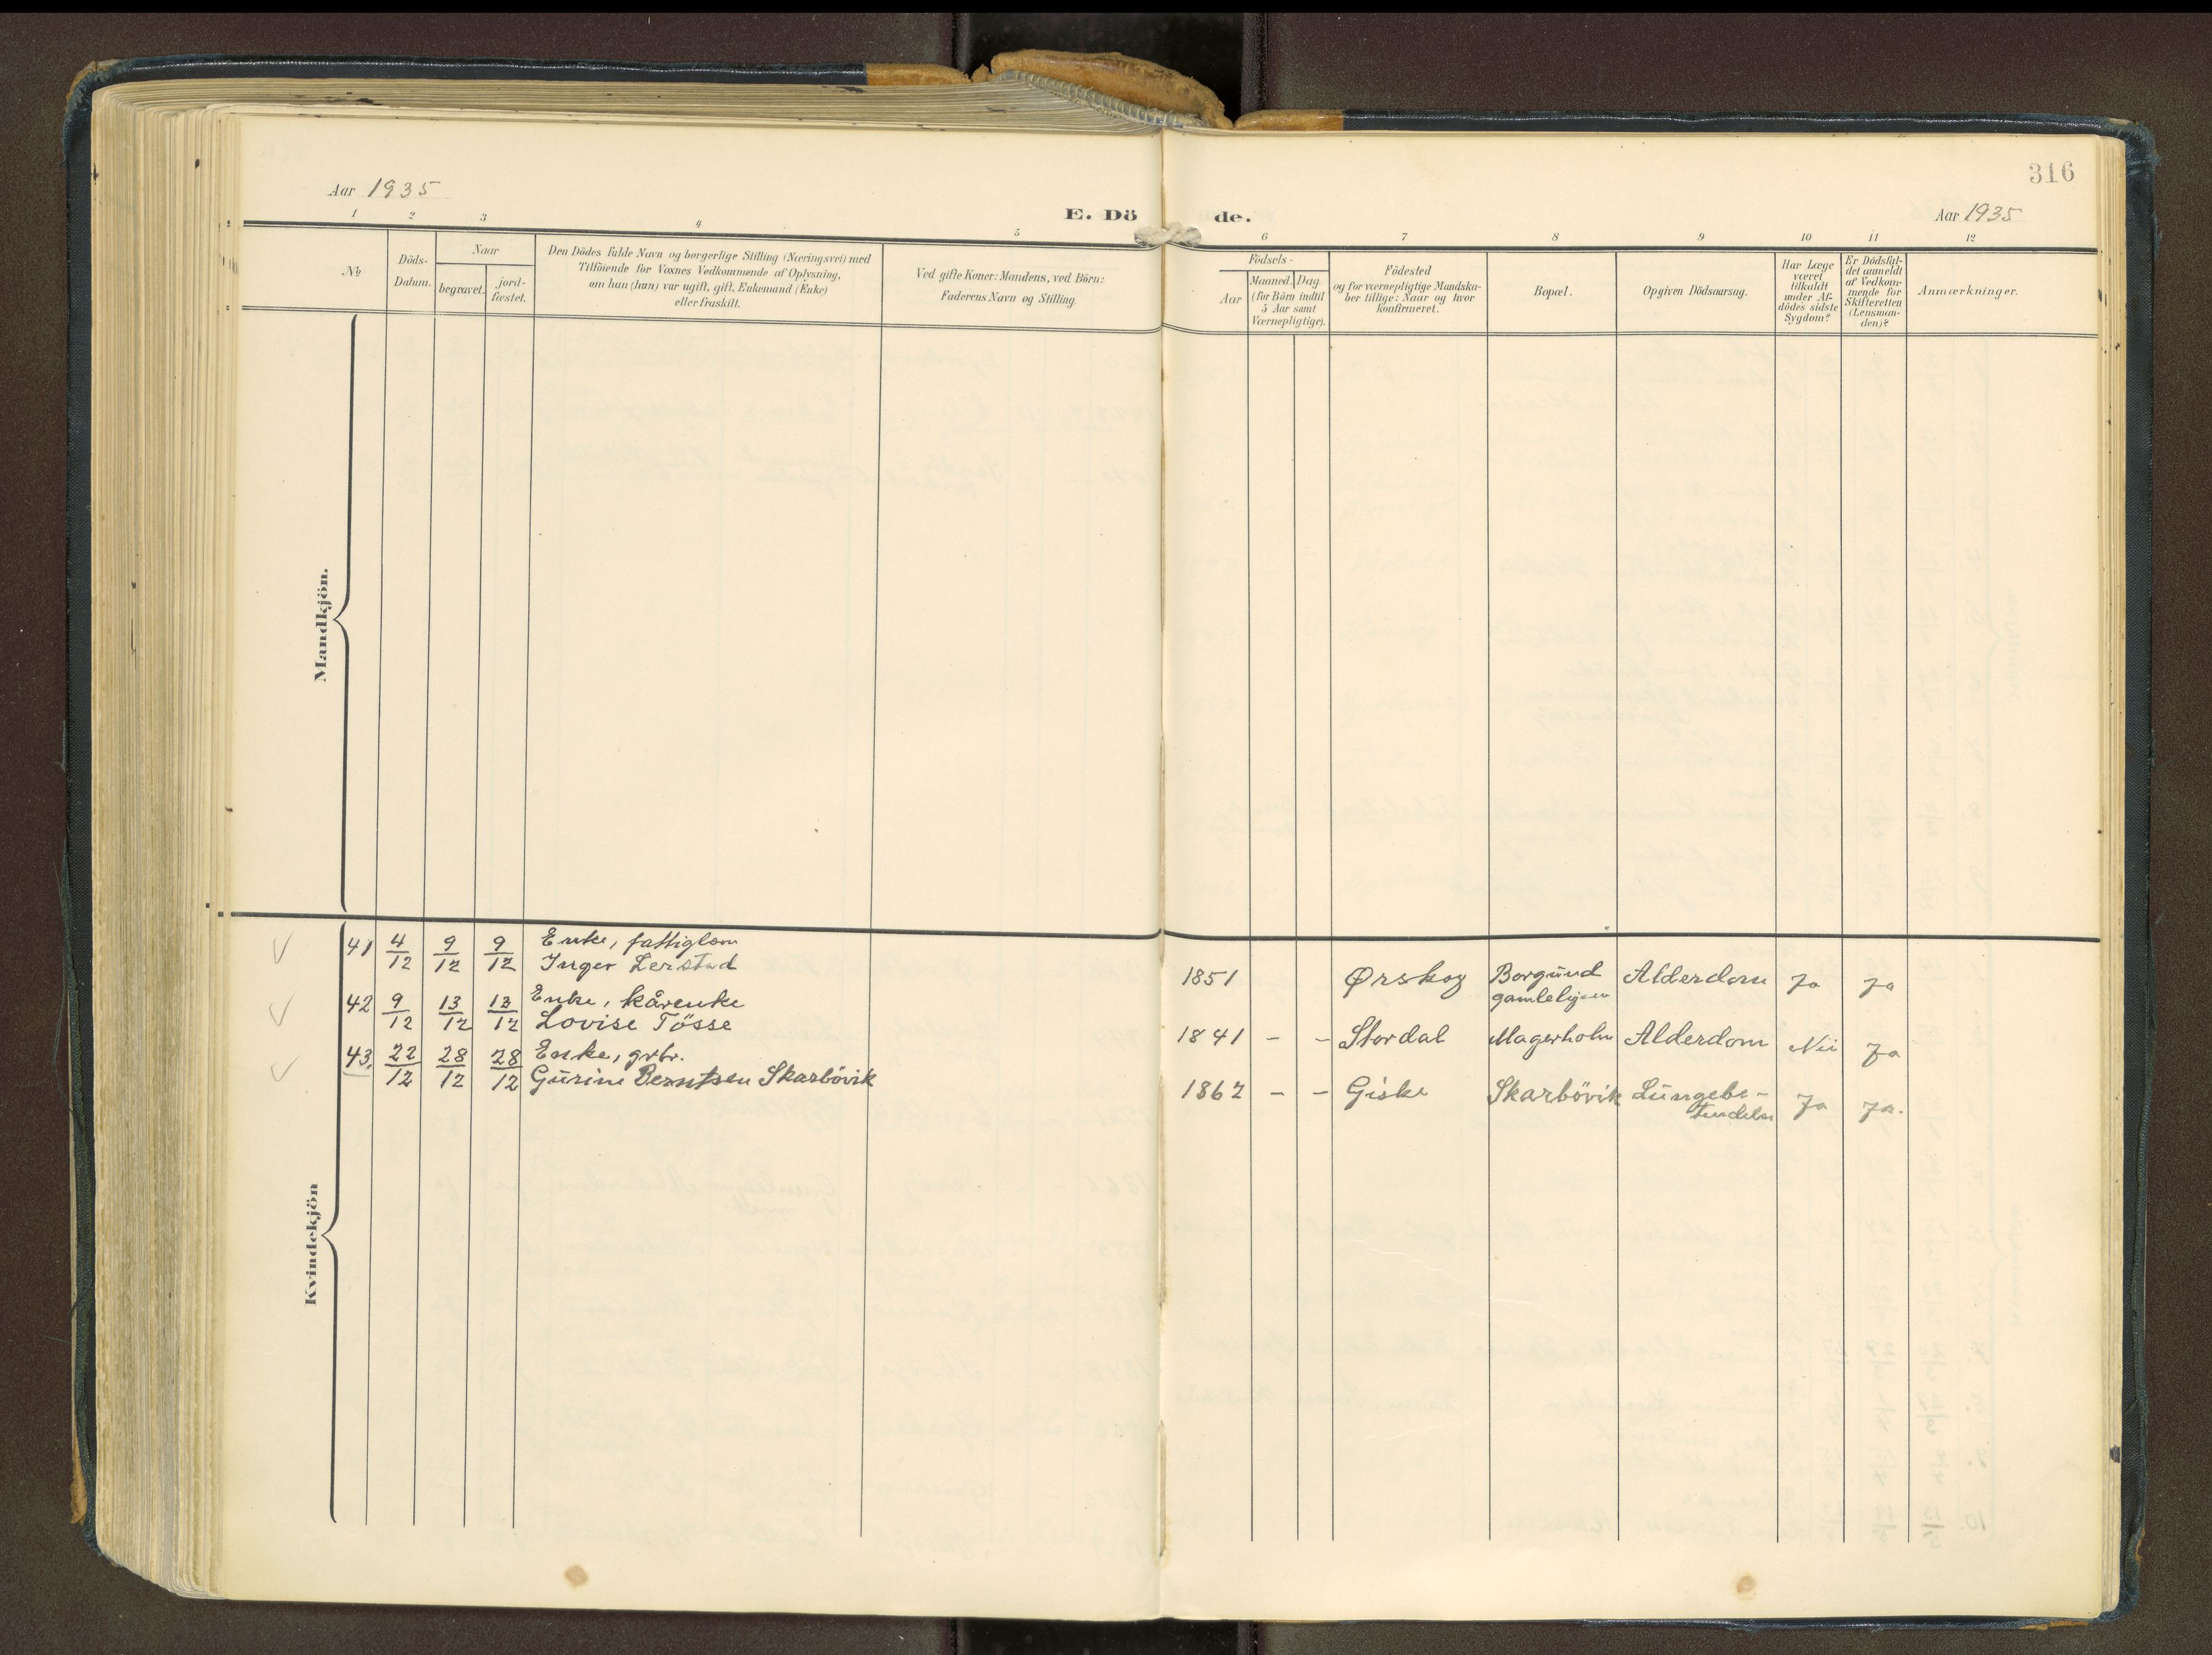 316
Aar 1935
E. Dö de.
Aar 1935
1 2 3 4 5 6 7 8 9 10 11 12
No
Döds-
Datum.
Naar
begravet.
jord-
fæstet.
Den Dödes fulde Navn og borgerlige Stilling (Næringsvei) med
Tilföiende for Voxnes Vedkommende af Oplysning,
om han (hun) var ugift, gift, Enkemand (Enke)
eller fraskilt.
Ved gifte Koner: Mandens, ved Börn:
Faderens Navn og Stilling.
Födsels-
Aar
Maaned.
Dag
(for Börn indtil
5 Aar samt
Værnepligtige).
Födested
og for værnepligtige Mandska-
ber tillige: Naar og hvor
konfirmeret.
Bopæl.
Opgiven Dödsaarsag.
Har Læge
været
tilkaldt
under Af-
dödes sidste
Sygdom?
Er Dödsfal-
det anmeldt
af Vedkom-
mende for
Skifteretten
(Lensman-
den)?
Anmærkninger.
Mandkjön.
Kvindekjön
41 4/12 9/12 9/12 Enke, fattiglem
Inger Lerstad
1851 Ørskog Borgund Alderdom Ja Ja
42 9/12 13/12 13/12 Enke, kårenke
Lovise Tösse
1841 - - Stordal Magerholm Alderdom Nei Ja
43. 22/12 28/12 28/12 Enke, grbr.
Gurine Berntsen Skarbövik
1862 - - Giske Skarbövik Lungebe-
tendelse Ja Ja.